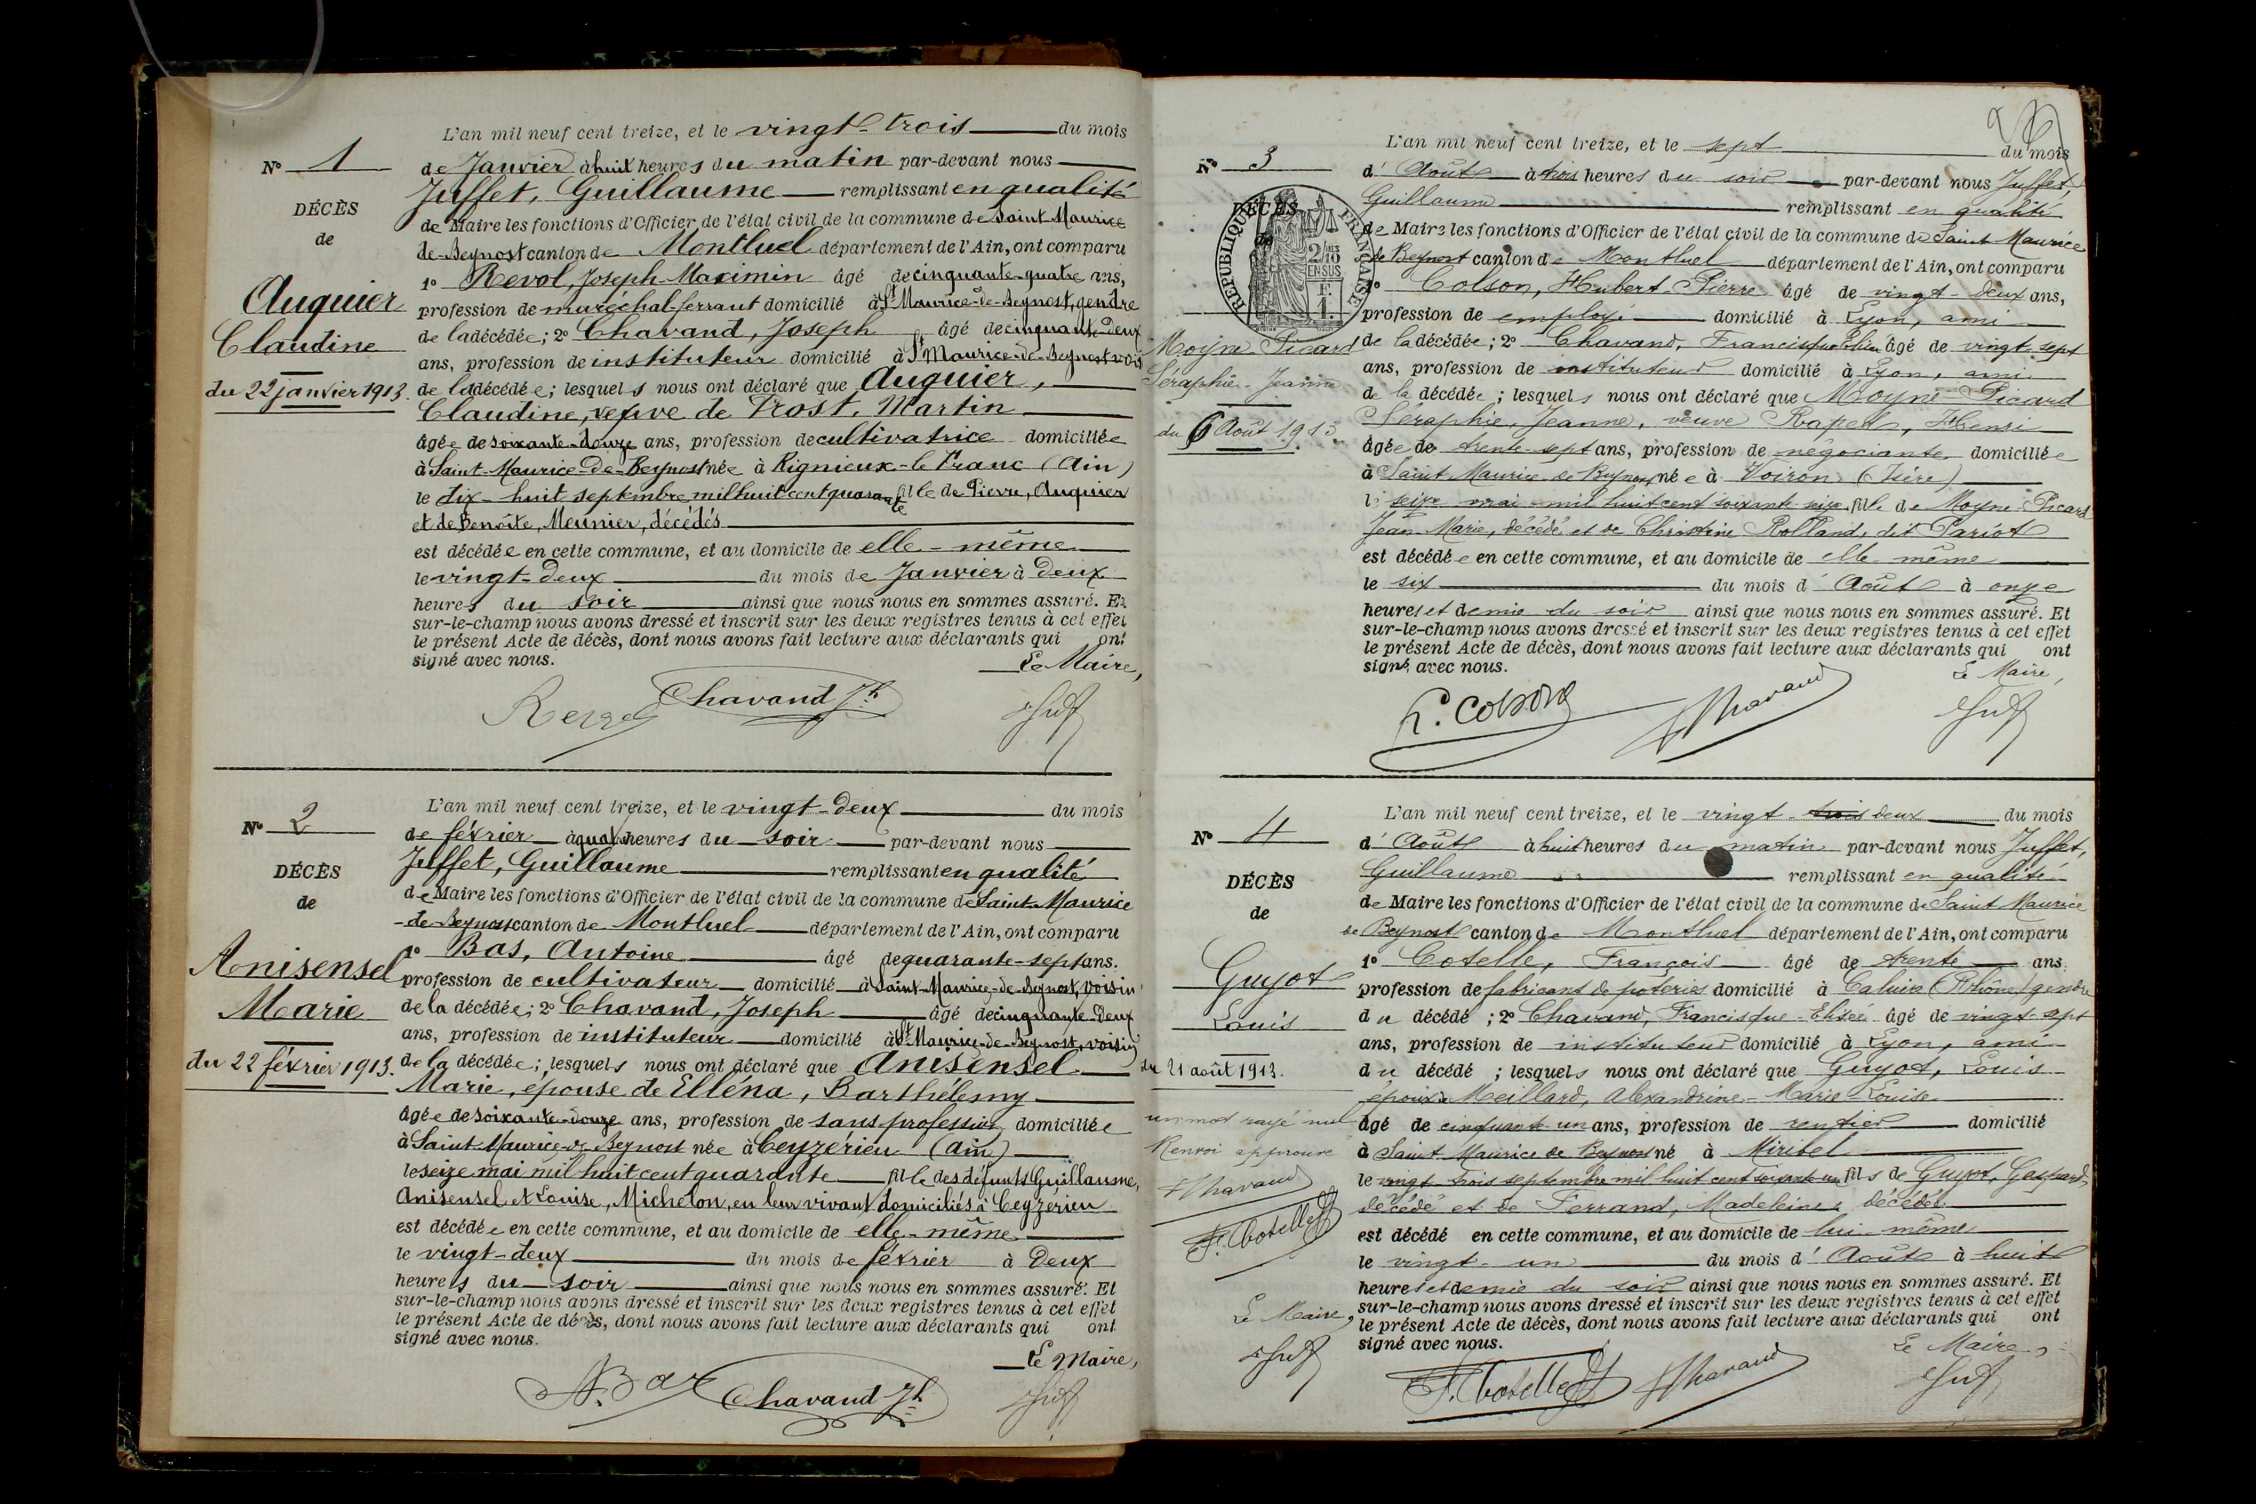 L'an mil neuf cent treize, et le vingt-trois du mois
N° 1
de Janvier à huit heures du matin par-devant nous
Juffet, Guillaume remplissant en qualité
DÉCÈS
de Maire les fonctions d'Officier de l'état civil de la commune de Saint Maurice
de
de-Beynost canton de Montluel département de l'Ain, ont comparu
1° Revol, Joseph Maximin âgé de cinquante-quatre ans,
Auquier
profession de maréchal-ferrant domicilié à St Maurice-de-Beynost, gendre
Claudine
de la décédée; 2° Chavand, Joseph âgé de cinquante-deux
ans, profession de instituteur domicilié à St Maurice-de-Beynost voisin
du 22 janvier 1913.
de la décédée; lesquels nous ont déclaré que Auquier,
Claudine, veuve de Prost, Martin
âgée de soixante-douze ans, profession de cultivatrice domiciliée
à Saint-Maurice-de-Beynost née à Rignieux-le-Franc (Ain)
le dix-huit septembre mil huit cent quarante fille de Pierre, Auquier
et de Benoîte, Meunier, décédés
est décédée en cette commune, et au domicile de elle-même
le vingt-deux du mois de Janvier à Deux
heures du soir ainsi que nous nous en sommes assuré. Et
sur-le-champ nous avons dressé et inscrit sur les deux registres tenus à cet effet
le présent Acte de décès, dont nous avons fait lecture aux déclarants qui ont
signé avec nous.
Le Maire,
Revol Chavand Jh
L'an mil neuf cent treize, et le vingt-deux du mois
N° 2
de février à quatre heures du soir par-devant nous
Juffet, Guillaume remplissant en qualité
DÉCÈS
de Maire les fonctions d'Officier de l'état civil de la commune de Saint Maurice
de
-de-Beynost canton de Montluel département de l'Ain, ont comparu
1° Bas, Antoine âgé de quarante-sept ans.
Anisensel
profession de cultivateur domicilié à Saint-Maurice-de-Beynost, voisin
Marie
de la décédée; 2° Chavand, Joseph âgé de cinquante-deux
ans, profession de instituteur domicilié à St Maurice-de-Beynost, voisin
du 22 février 1913.
de la décédée; lesquels nous ont déclaré que Anisensel
Marie, épouse de Elléna, Barthélemy
âgée de soixante-douze ans, profession de sans profession domiciliée
à Saint-Maurice-de Beynost née à Ceyzérieu (Ain)
le seize mai mil huit cent quarante fille des défunts Guillaume,
Anisensel et Louise, Michelon, en leur vivant domiciliés à Ceyzérieu
est décédée en cette commune, et au domicile de elle-même
le vingt-deux du mois de février à Deux
heures du soir ainsi que nous nous en sommes assuré. Et
sur-le-champ nous avons dressé et inscrit sur les deux registres tenus à cet effet
le présent Acte de décès, dont nous avons fait lecture aux déclarants qui ont
signé avec nous.
Le Maire,
A. Bas Chavand Jh
L'an mil neuf cent treize, et le sept du mois
N° 3
d' Août à trois heures du soir par-devant nous Juffet,
Guillaume remplissant en qualité
DÉCÈS
de
RÉPUBLIQUE FRANÇAISE
2/10 EN SUS
de Maire les fonctions d'Officier de l'état civil de la commune de Saint Maurice
de Beynost canton de Montluel département de l'Ain, ont comparu
1° Colson, Hubert Pierre âgé de vingt-deux ans,
profession de employé domicilié à Lyon, ami
Moyne-Picard
de la décédée; 2° Chavand, Francisque Elisée âgé de vingt-sept
Séraphie-Jeanne
ans, profession de instituteur domicilié à Lyon, ami
de la décédée; lesquels nous ont déclaré que Moyne-Picard
Séraphie, Jeanne, veuve Rapet, Henri
du 6 Août 1913.
âgée de trente-sept ans, profession de négociante domiciliée
à Saint Maurice de Beynost née à Voiron (Isère)
le seize mai mil huit cent soixante seize fille de Moyne-Picard
Jean Marie, décédé et de Christine Rolland, dit Pariot
est décédée en cette commune, et au domicile de elle même
le six du mois d' Août à onze
heures et demie du soir ainsi que nous nous en sommes assuré. Et
sur-le-champ nous avons dressé et inscrit sur les deux registres tenus à cet effet
le présent Acte de décès, dont nous avons fait lecture aux déclarants qui ont
signé avec nous.
Le Maire,
Colson Chavand
L'an mil neuf cent treize, et le vingt-trois deux du mois
N° 4
d' Août à huit heures du matin par-devant nous Juffet,
Guillaume remplissant en qualité
DÉCÈS
de Maire les fonctions d'Officier de l'état civil de la commune de Saint Maurice
de
de Beynost canton de Montluel département de l'Ain, ont comparu
1° Cotelle, François âgé de trente ans,
Guyot
profession de fabricant de poteries domicilié à Caluire (Rhône) gendre
Louis
du décédé; 2° Chavand, Francisque-Elisée âgé de vingt-sept
ans, profession de instituteur domicilié à Lyon, ami
du 21 août 1913.
du décédé; lesquels nous ont déclaré que Guyot, Louis
époux Meillard, Alexandrine-Marie Louise
un mot rayé nul
âgé de cinquante-un ans, profession de rentier domicilié
Renvoi approuvé
à Saint Maurice de Beynost né à Miribel
le vingt-trois septembre mil huit cent soixante-un fils de Guyot, Gaspard,
Chavand
décédé et de Ferrand, Madeleine, décédée
F. Cotelle
est décédé en cette commune, et au domicile de lui-même
le vingt-un du mois d' Août à huit
heures et demie du soir ainsi que nous nous en sommes assuré. Et
sur-le-champ nous avons dressé et inscrit sur les deux registres tenus à cet effet
Le Maire,
le présent Acte de décès, dont nous avons fait lecture aux déclarants qui ont
signé avec nous.
Le Maire,
F. Cotelle Chavand